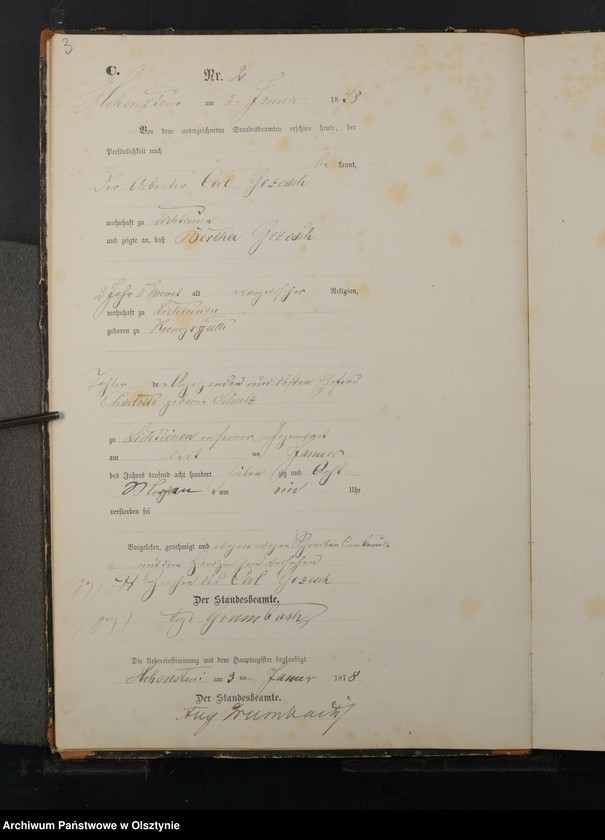 3
C.
Nr. 2
Hohenstein am 3. Januar 1878
Vor dem unterzeichneten Standesbeamten erschien heute, der
Persönlichkeit nach
be kannt,
der Arbeiter Carl Grzesch
wohnhaft zu
und zeigte an, daß Bertha Grzesch
2 Jahr Monat alt evangelischer Religion,
wohnhaft zu
geboren zu
Tochter des Anzeigenden und dessen Ehefrau
Charlotte geborne
zu in seiner Gegenwart
am ten Januar
des Jahres tausend acht hundert sieben zig und acht
Morgens um ein Uhr
verstorben sei
Vorgelesen, genehmigt und wegen
mit dem Handzeichen versehen
gez. Carl Grzesch
Der Standesbeamte.
(gez.) Aug Grumbach
Die Uebereinstimmung mit dem Hauptregister beglaubigt.
Hohenstein am 3 ten Januar 1878
Der Standesbeamte.
Aug Grumbach
Archiwum Państwowe w Olsztynie